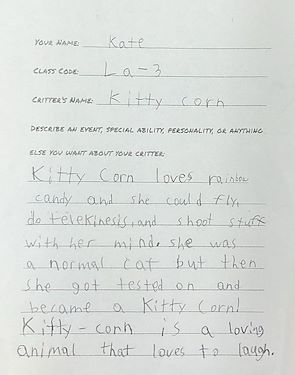 YOUR NAME: Kate
CLASS CODE: La-3
CRITTER'S NAME: Kitty corn
DESCRIBE AN EVENT, SPECIAL ABILITY, PERSONALITY, OR ANYTHING
ELSE YOU WANT ABOUT YOUR CRITTER:
Kitty Corn loves rainbow
candy and she could fly
do telekinesis, and shoot stuff
with her mind. she was
a normal cat but then
she got tested on and
became a Kitty Corn!
Kitty-corn is a loving
animal that loves to laugh.